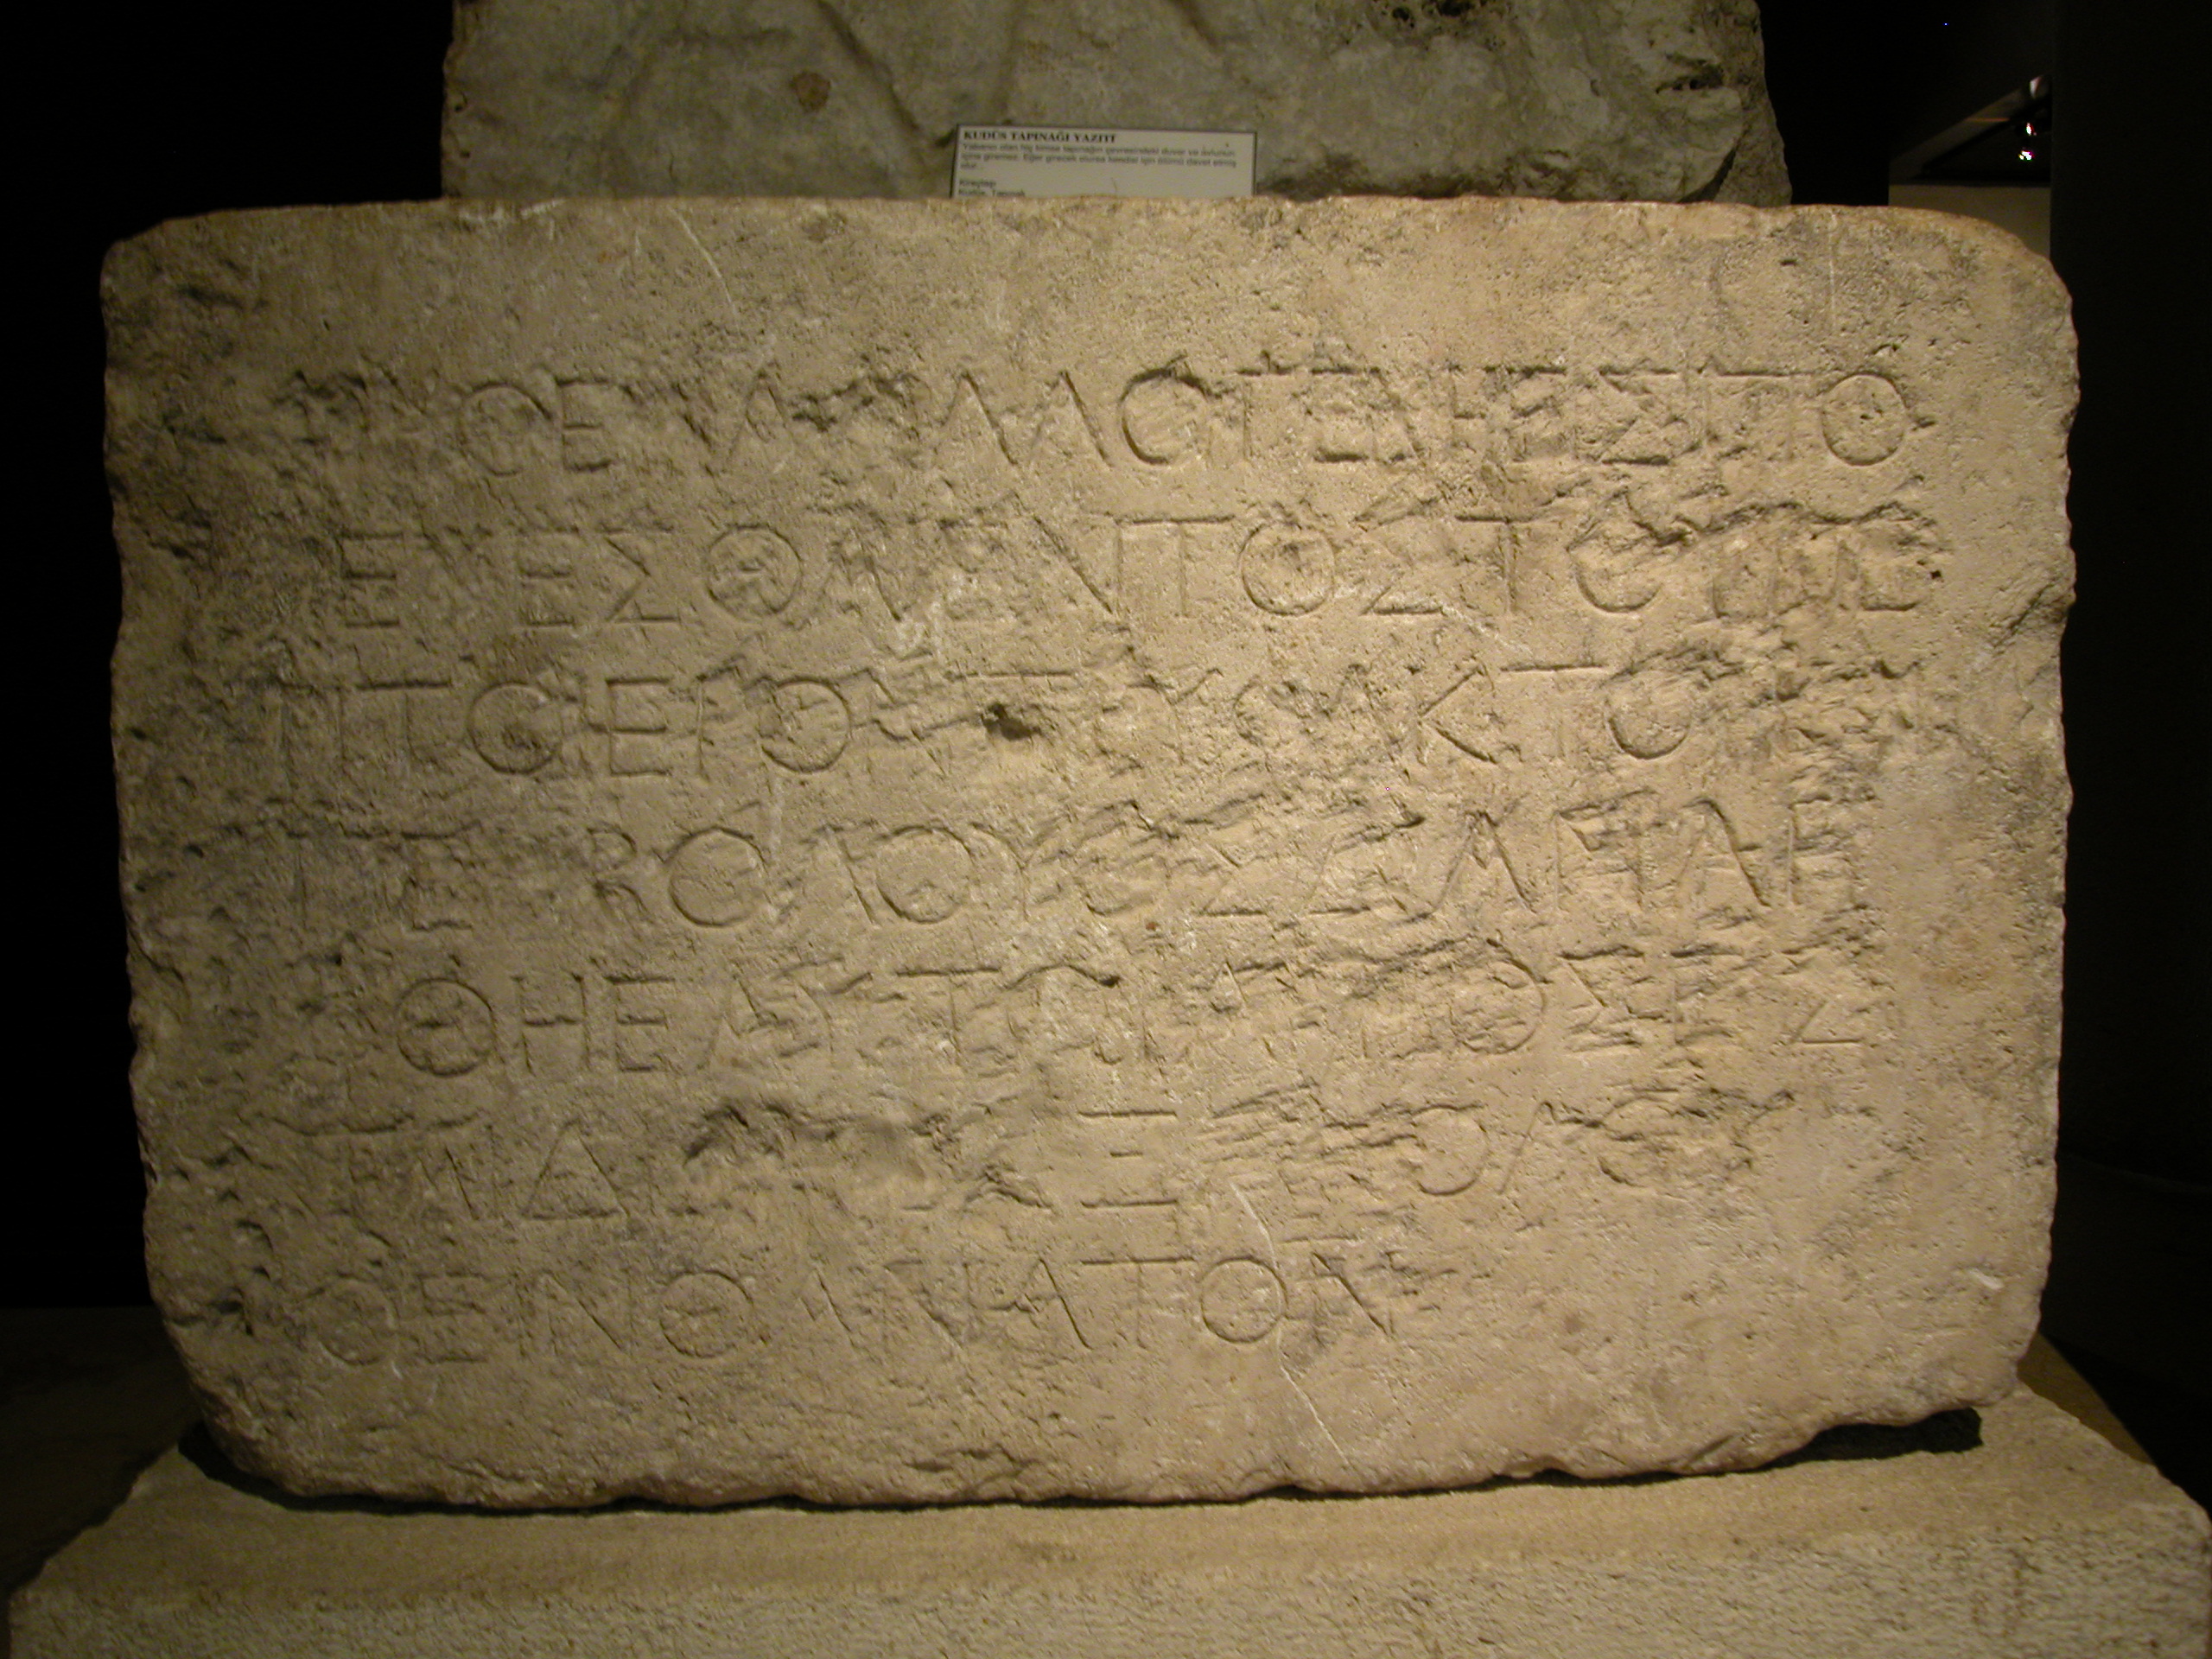 KUDÜS TAPINAĞI YAZITI
Yabancı olan hiç kimse tapınağın çevresindeki duvar ve avlunun
içine giremez. Eğer girecek olursa kendisi için ölümü davet etmiş
olur.
Kireçtaşı
Kudüs, Tapınak
ΜΗΘΕΝΑΑΛΛΟΓΕΝΗΕΙΣΠΟ
ΡΕΥΕΣΘΑΙΕΝΤΟΣΤΟΥΠΕ
ΡΙΤΟΙΕΡΟΝΤΡΥΦΑΚΤΟΥΚΑΙ
ΠΕΡΙΒΟΛΟΥΟΣΔΑΝΛΗ
ΦΘΗΕΑΥΤΩΙΑΙΤΙΟΣΕΣ
ΤΑΙΔΙΑΤΟΕΞΑΚΟΛΟΥ
ΘΕΙΝΘΑΝΑΤΟΝ